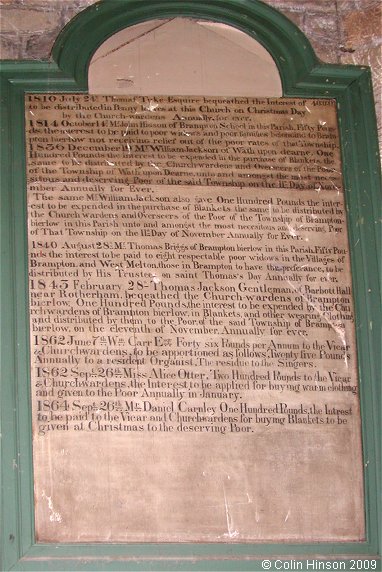 1810 July 24th Thomas Tyke Esquire bequeathed the Interest of
to be distributed in Penny loaves at this Church on Christmas Day
by the Church-wardens Annually, for ever.
1814 October 14th Mr John Hesson of Brampton School in this Parish, Fifty Poun-
ds, the interest to be paid to poor widows and poor families belonging to Bram
pton bierlow not receiving relief out of the poor rates of that Township.
1836 December Mr William Jackson of Wath upon dearne, One
Hundred Pounds, the interest to be expended in the purchase of Blankets, the
same to be distributed by the Church wardens and Overseers of the Poor
of the Township of Wath upon Dearne, unto and amongst the most neces
sitous and deserving Poor of the said Township on the 11th Day of Nove
mber Annually for Ever.
The same Mr William Jackson also gave One Hundred Pounds the inter-
est to be expended in the purchase of Blankets the same to be distributed by
the Church wardens and Overseers of the Poor of the Township of Brampton-
bierlow in this Parish unto and amongst the most necessitous and deserving Poor
of That Township on the 11th Day of November Annually for Ever.
1840 August 28th Mr Thomas Briggs of Brampton bierlow in this Parish, Fifty Pou-
nds the interest to be paid to eight respectable poor widows in the Villages of
Brampton, and West Melton, those in Brampton to have the preference, to be
distributed by His Trustee on saint Thomas's Day Annually for ever.
1843 February 28th Thomas Jackson Gentleman of Barbot Hall
near Rotherham, bequeathed the Church-wardens of Brampton
bierlow, One Hundred Pounds, the interest to be expended by the Chu
rchwardens of Brampton bierlow, in Blankets, and other wearing Clothing
and distributed by them to the Poor of the said Township of Brampton
bierlow, on the eleventh of November, Annually for ever.
1862 June 7th Wm Carr Esqr Forty six Pounds per Annum to the Vicar
& Churchwardens, to be apportioned as follows, Twenty five Pounds
Annually to a resident Organist, The residue to the Singers.
1862 Septr 26th Miss Alice Otter, Two Hundred Pounds to the Vicar
& Churchwardens, the Interest to be applied for buying warm clothing
and given to the Poor Annually in January.
1864 Septr 26th Mr Daniel Carnley One Hundred Pounds, the Intrest
to be paid to the Vicar and Churchwardens for buying Blankets to be
given at Christmas to the deserving Poor.
© Colin Hinson 2009